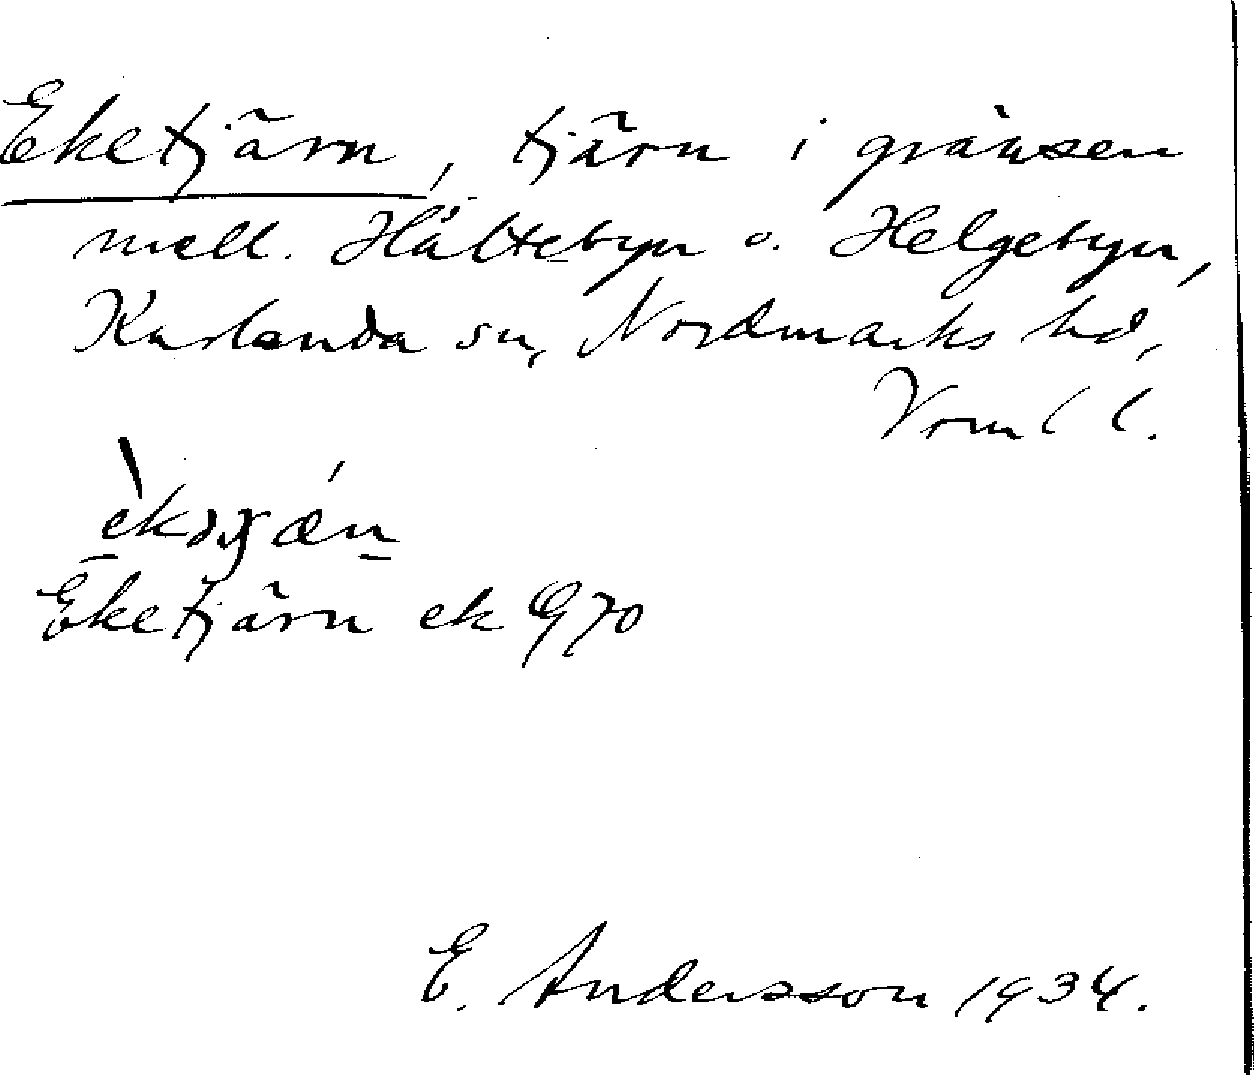 Eketjärn, tjärn i gränsen
mell. Hältebyn o. Helgebyn,
Karlanda sn, Nordmarks hd,
Vrml l.
Eketjärn ek 970
E. Andersson 1934.